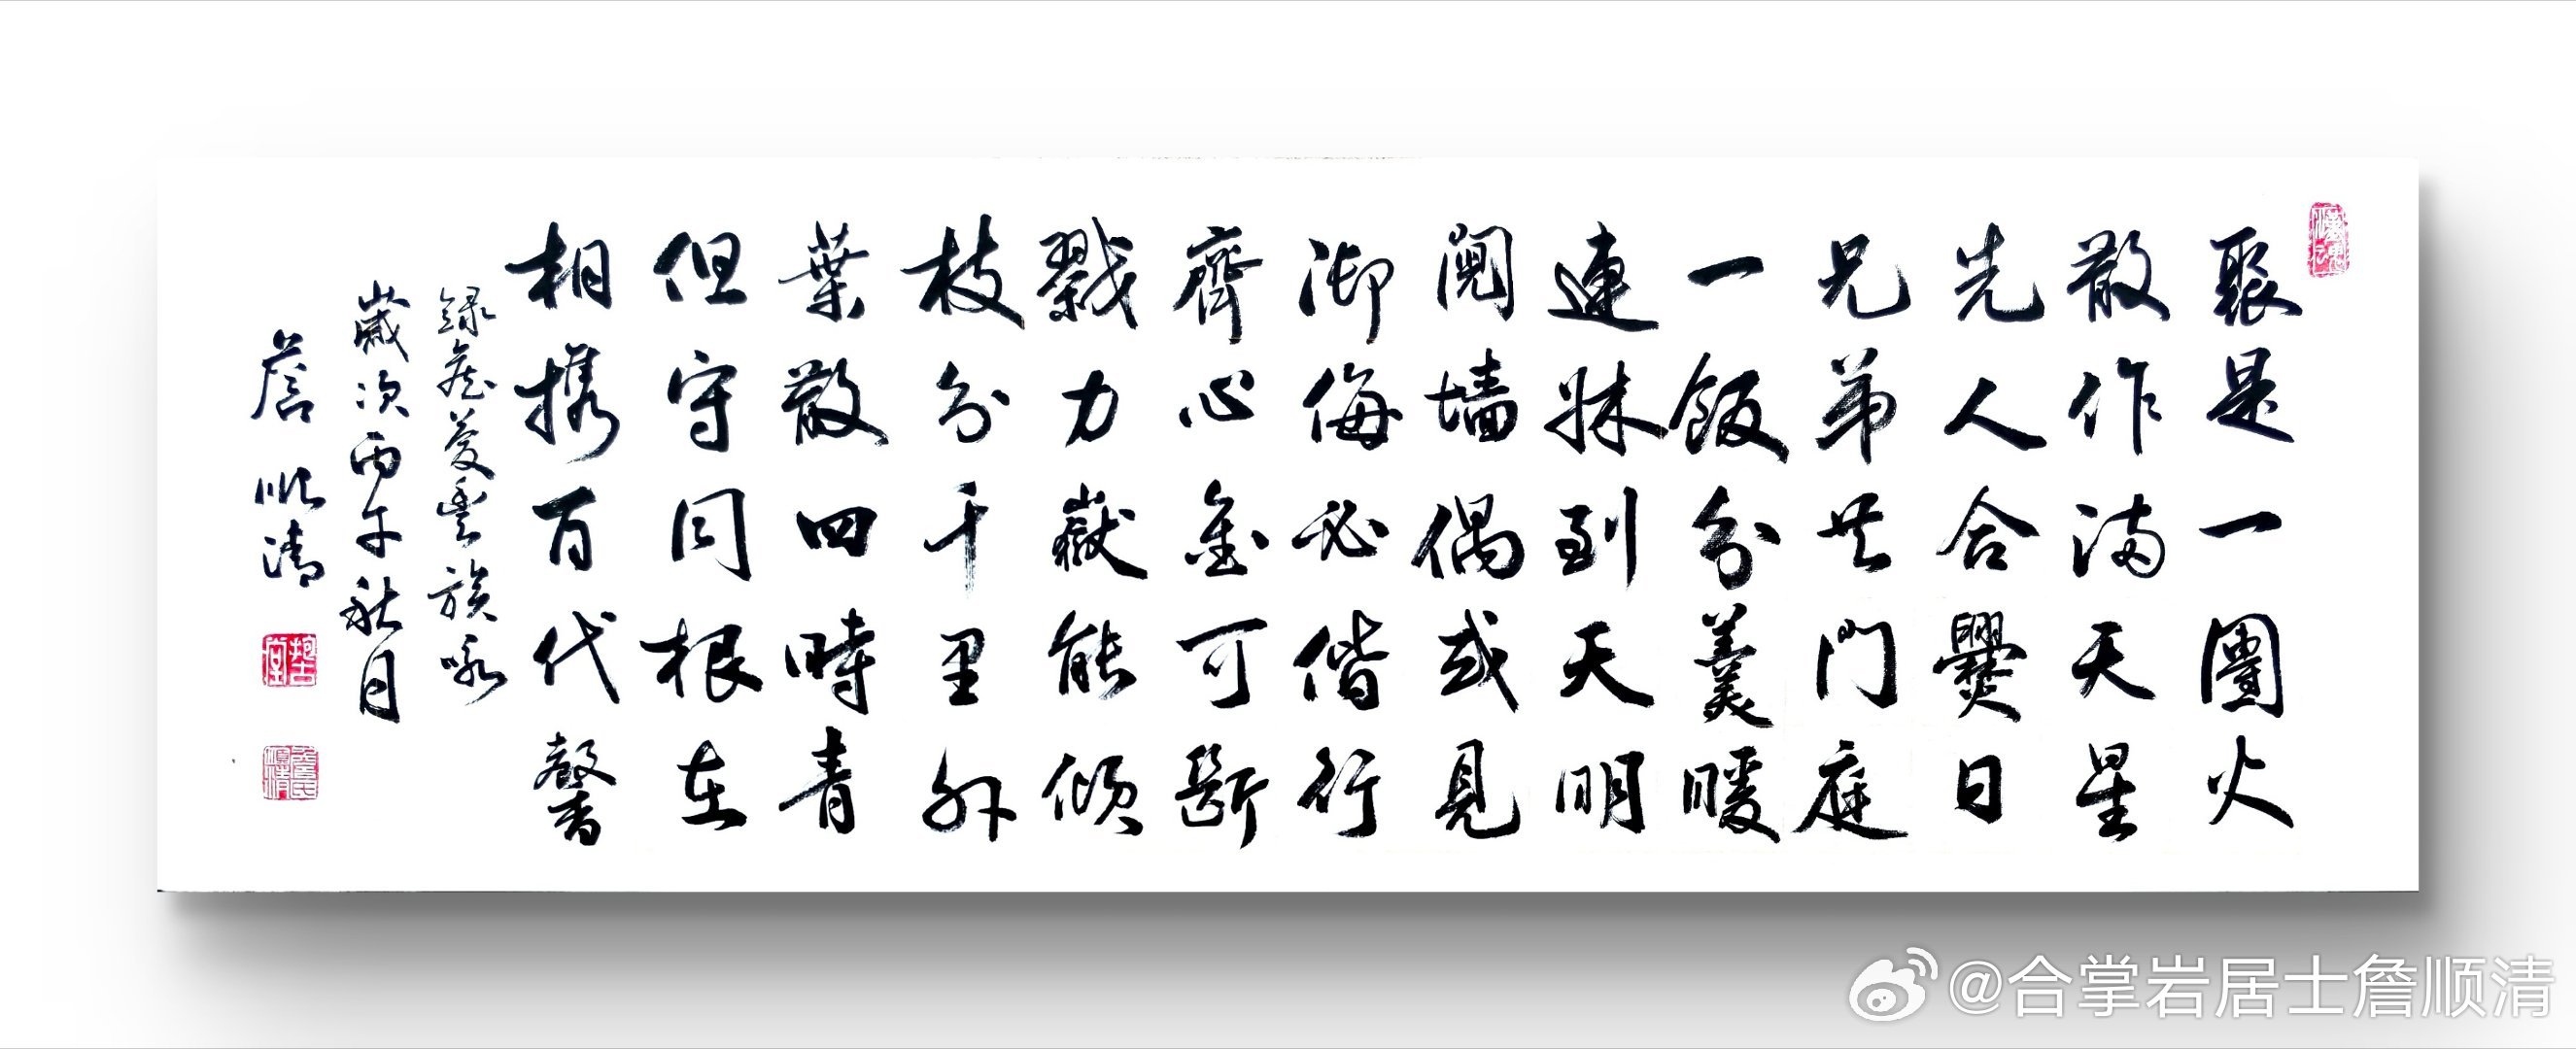 聚是一團火
散作滿天星
先人合爨日
兄弟共門庭
一飯分羹暖
連牀到天明
鬩墻偶或見
御侮必偕行
齊心金可斷
戮力嶽能傾
枝分千里外
葉散四時青
但守同根在
相攜百代馨
族咏
歲次丙午秋月
詹順清
@合掌岩居士詹顺清